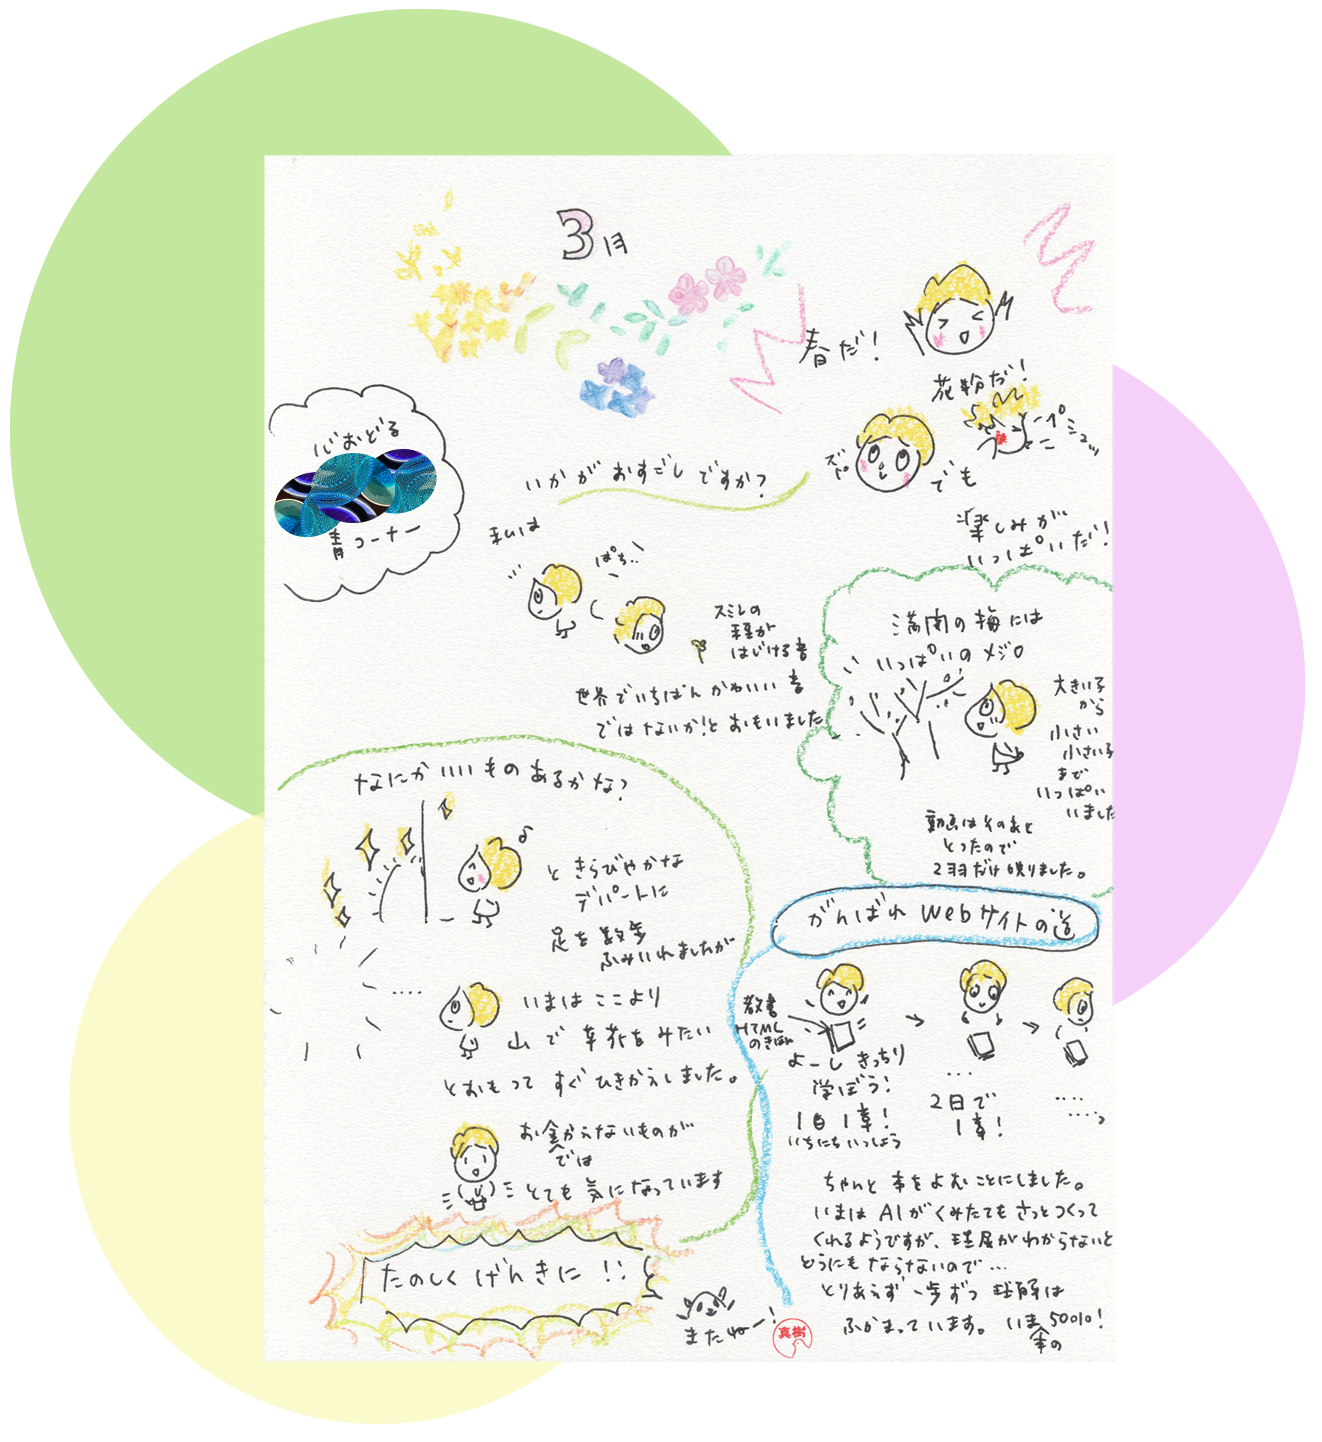 3月
春だ!
花粉だ!
ズズ
でも
ペプシュッ
楽しみが
いっぱいだ!
心おどる
青コーナー
いかが おすごし ですか?
私は
ぱち..
スミレの
種が
はじける音
世界でいちばん かわいい 音
ではないか!と おもいました
満開の梅には
いっぱいの メジロ
大きい子
から
小さい
小さい子
まで
いっぱい
いました
動画はそのあと
とったので
2羽だけ映りました。
なにか いい もの あるかな?
と きらびやかな
デパートに
足を 数歩
ふみいれましたが
....
いまは ここより
山 で 草花を みたい
とおもって すぐ ひきかえしました。
お金でかえないものが
では
とても 気に なっています
たのしく げんきに !!
またねー!
真樹
がんばれ Webサイトの道
教書
HTML
のきほん
よーし きっちり
学ぼう!
1日 1章!
いちにち いっしょう
...
2日で
1章!
....
....,
ちゃんと 本を よむ ことにしました。
いまは AIが くみたても さっと つくって
くれるようですが、理屈が わからないと
どうにも ならないので...
とりあえず 一歩ずつ 理解は
ふかまっています。 いま 50%!
本の